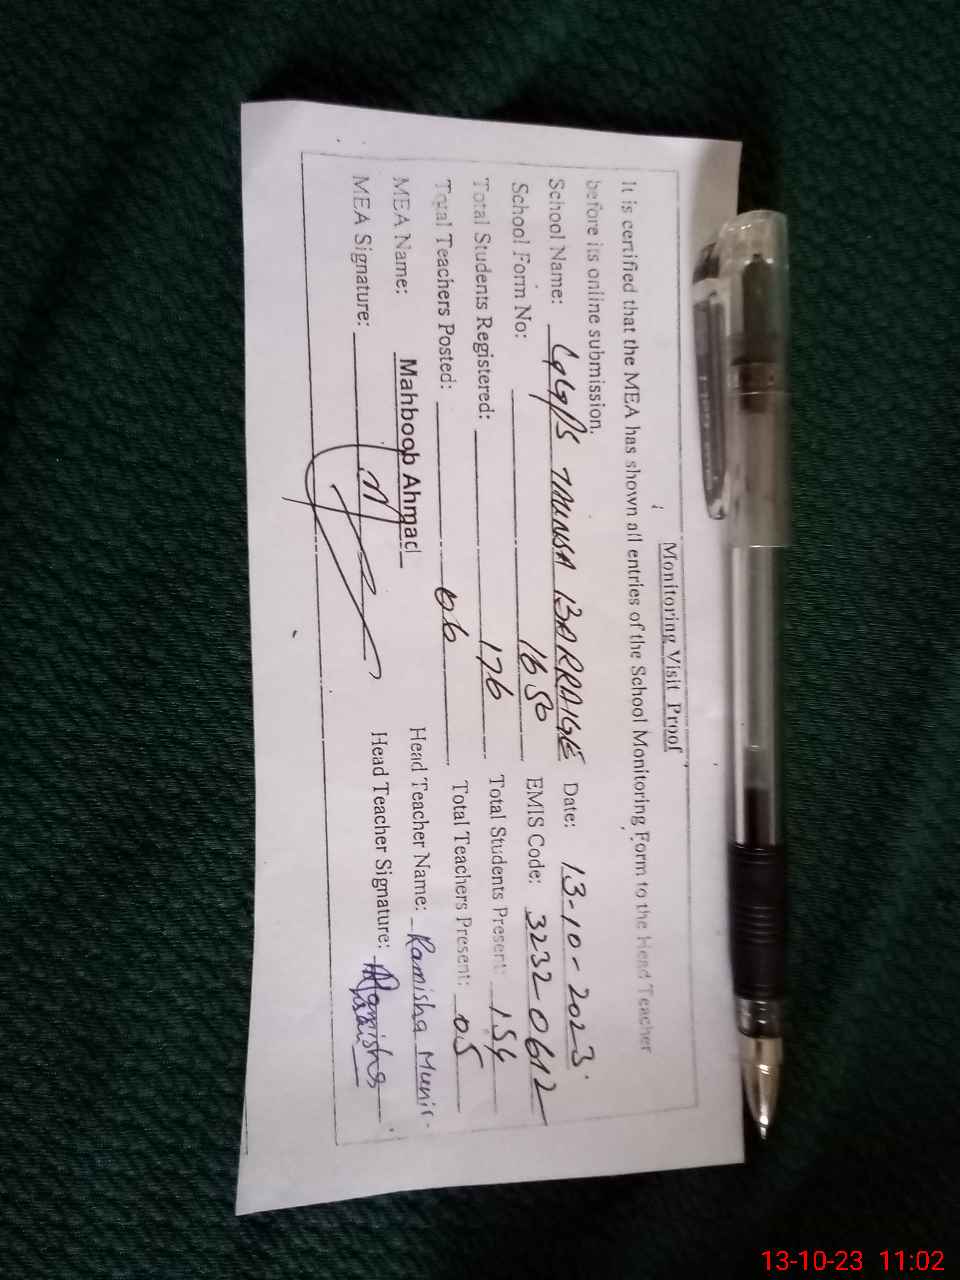 Monitoring Visit Proof
It is certified that the MEA has shown all entries of the School Monitoring Form to the Head Teacher
before its online submission.
School Name: GG/S TAUNSA BARRAIGE Date: 13-10-2023.
School Form No: 1650 EMIS Code: 3232-0612
Total Students Registered: 176 Total Students Present: 154
Total Teachers Posted: 06 Total Teachers Present: 05
MEA Name: Mahboob Ahmad Head Teacher Name: Ramisha Munir.
MEA Signature: Head Teacher Signature: Ramisha
13-10-23 11:02